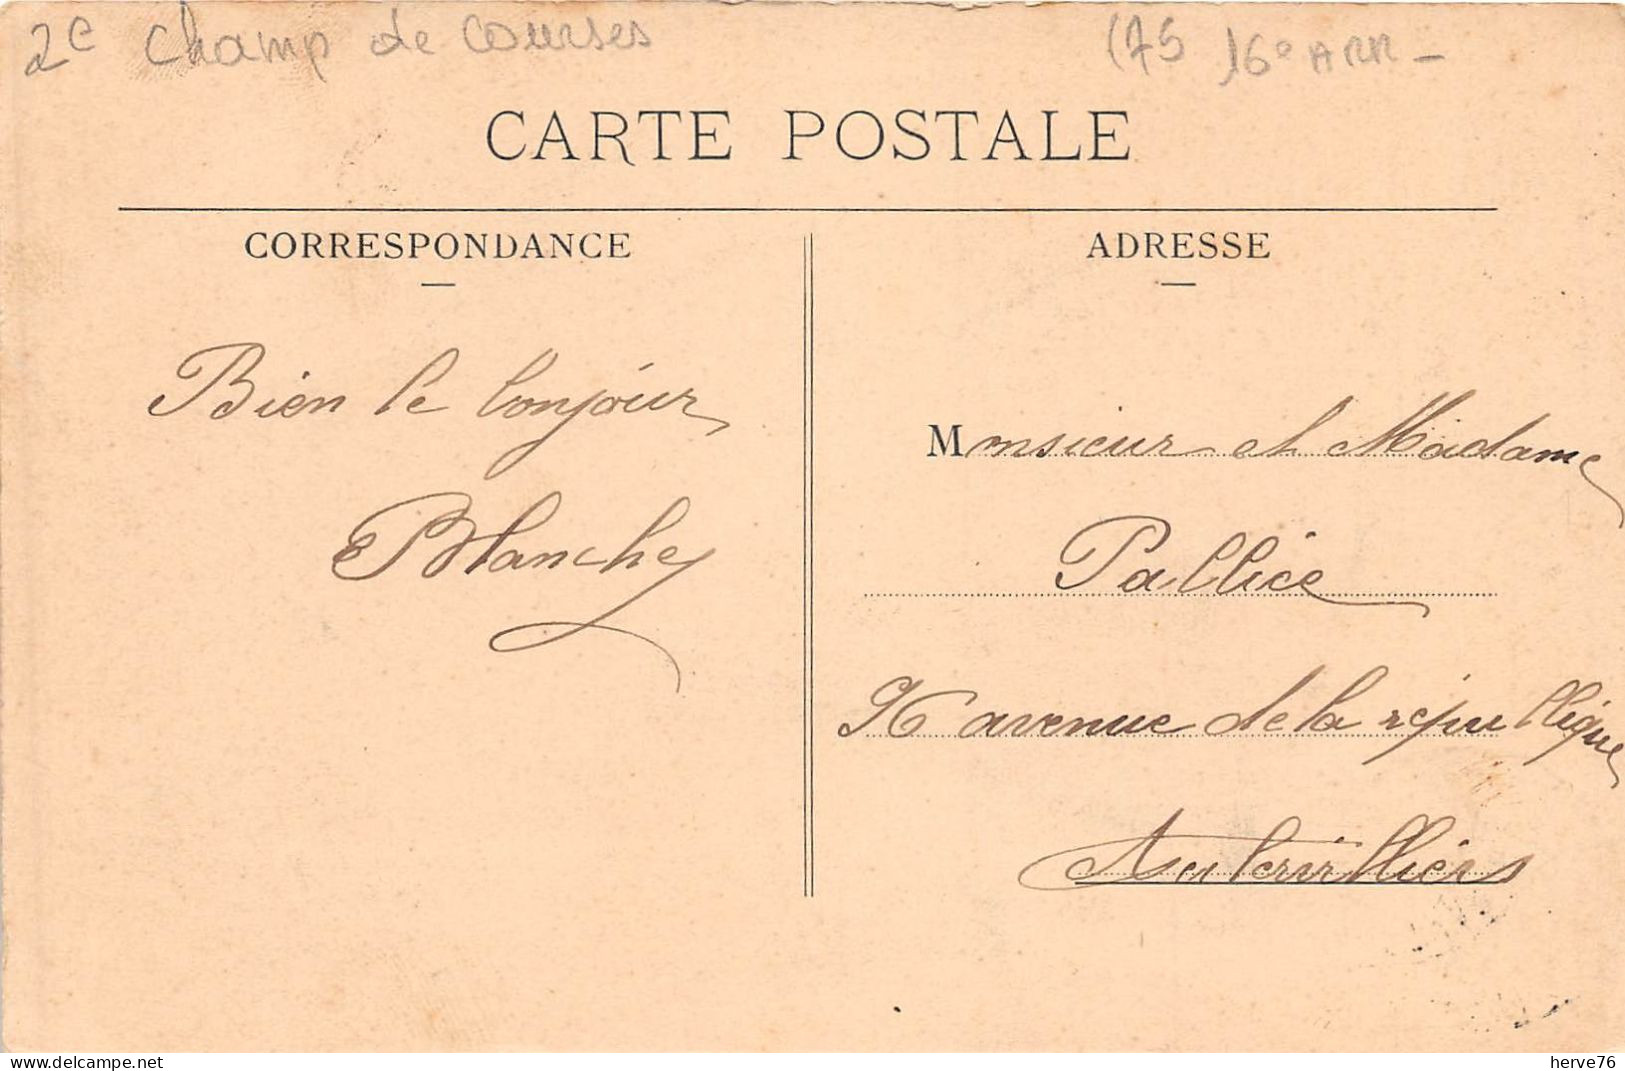 2e champ de courses (75 16e ARR -
CARTE POSTALE
CORRESPONDANCE
Bien le bonjour
Blanche
ADRESSE
Monsieur et Madame
Pallice
avenue de la république
Aubervilliers
www.delcampe.net
herve76